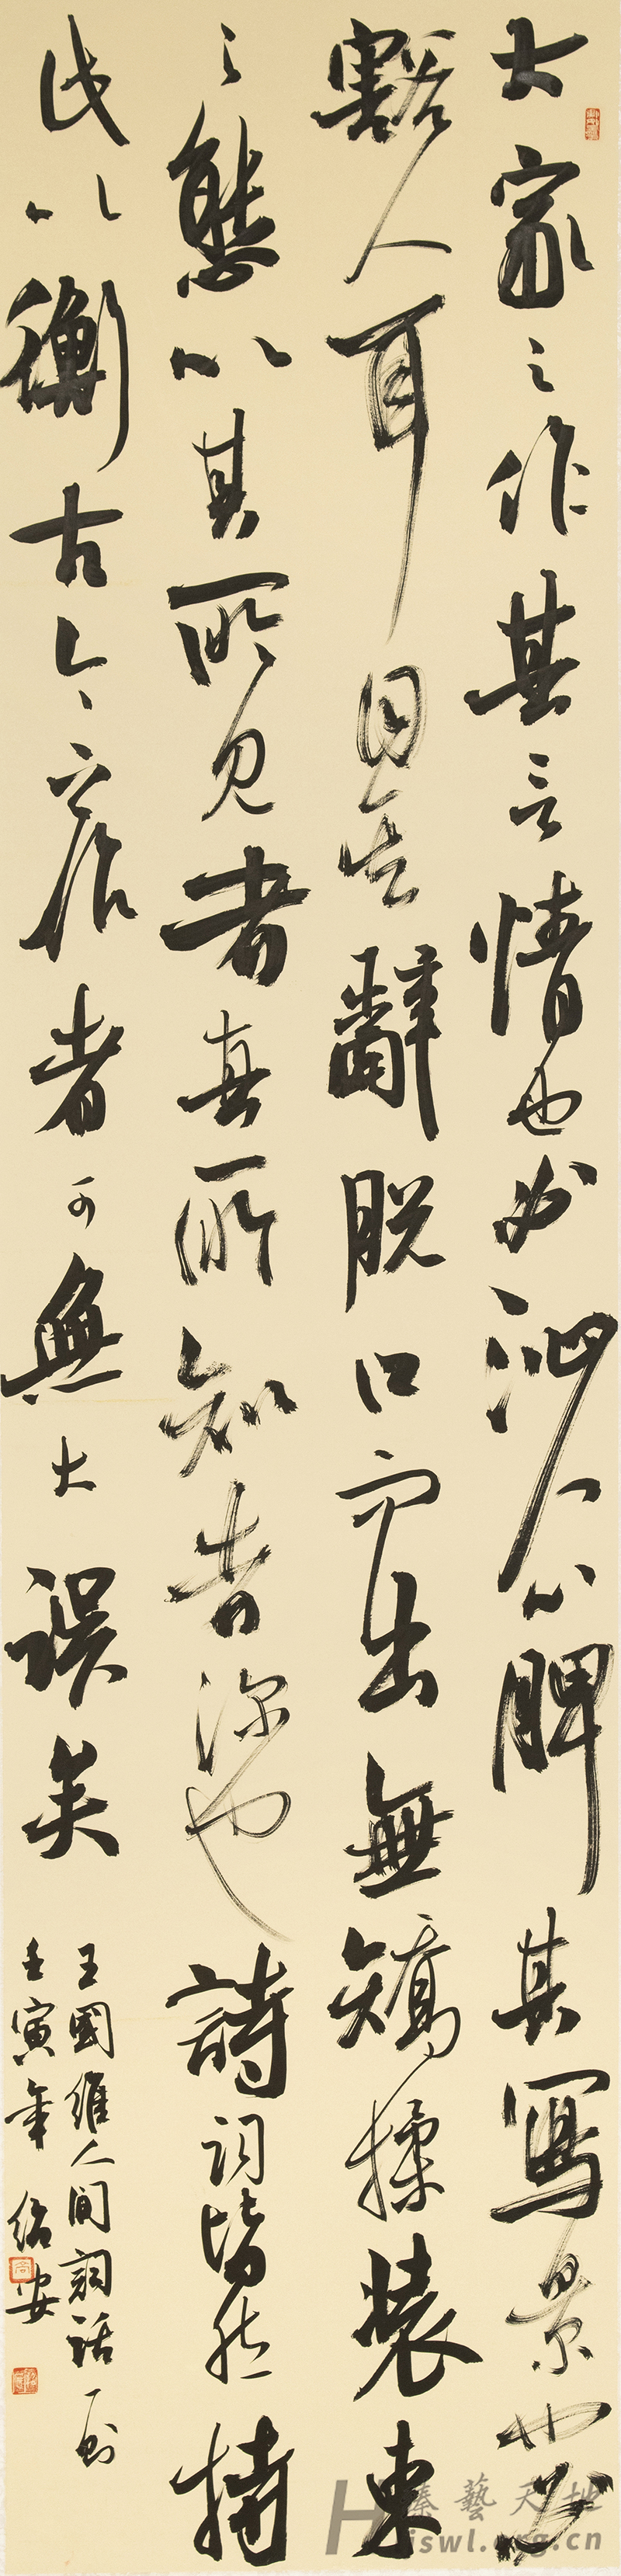 大家之作其言情也必沁人心脾其寫景也必
豁人耳目其辭脫口而出無矯揉裝束
之態以其所見者真所知者深也詩詞皆然持
此以衡古今之作者可無大誤矣
王國維人間詞話一則
壬寅年 紹安
藝天地
iswl.org.cn